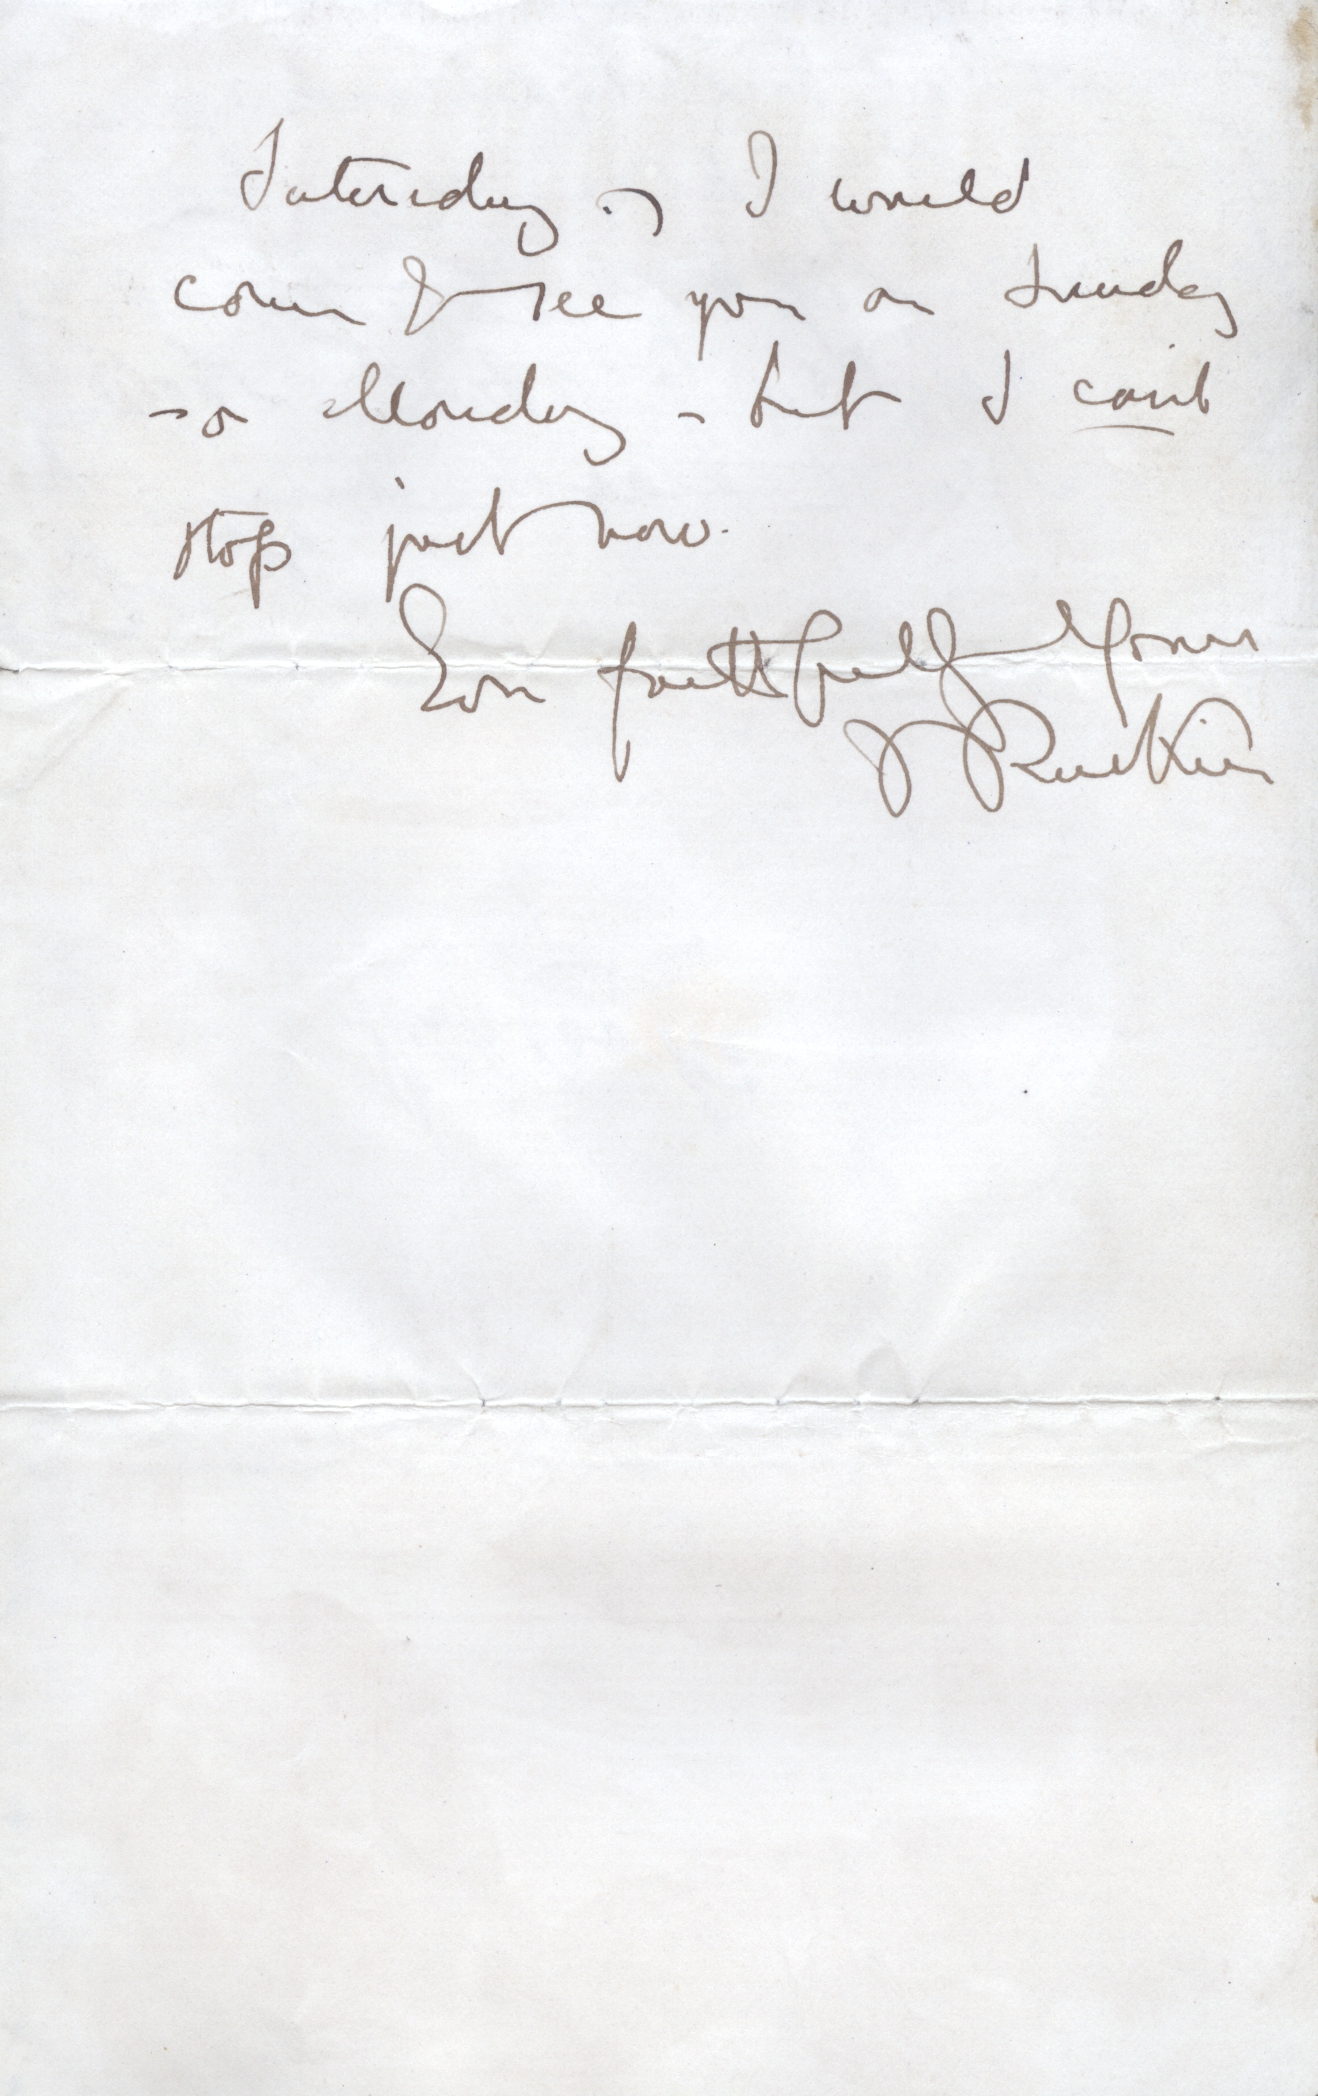 Saturday ; I would
come & see you on Sunday
- or Monday - but I can't
stop just now.
Ever faithfully Yours
J Ruskin